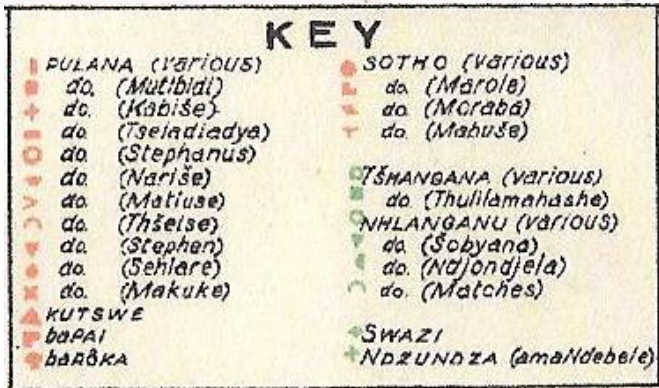 KEY
PULANA (various)
do. (Mutibidi)
do. (Kabiše)
do. (Tseladiadya)
do. (Stephanus)
do. (Nariše)
do. (Matiuse)
do. (Thšelse)
do. (Stephen)
do. (Sehlare)
do. (Makuke)
KUTSWE
baPAI
baRÔKA
SOTHO (various)
do. (Marole)
do. (Moraba)
do. (Mahuše)
TŠHANGANA (various)
do. (Thulilamahashe)
NHLANGANU (various)
do. (Šobyana)
do. (Ndjondjela)
do. (Matches)
SWAZI
NDZUNDZA (amaNdebele)